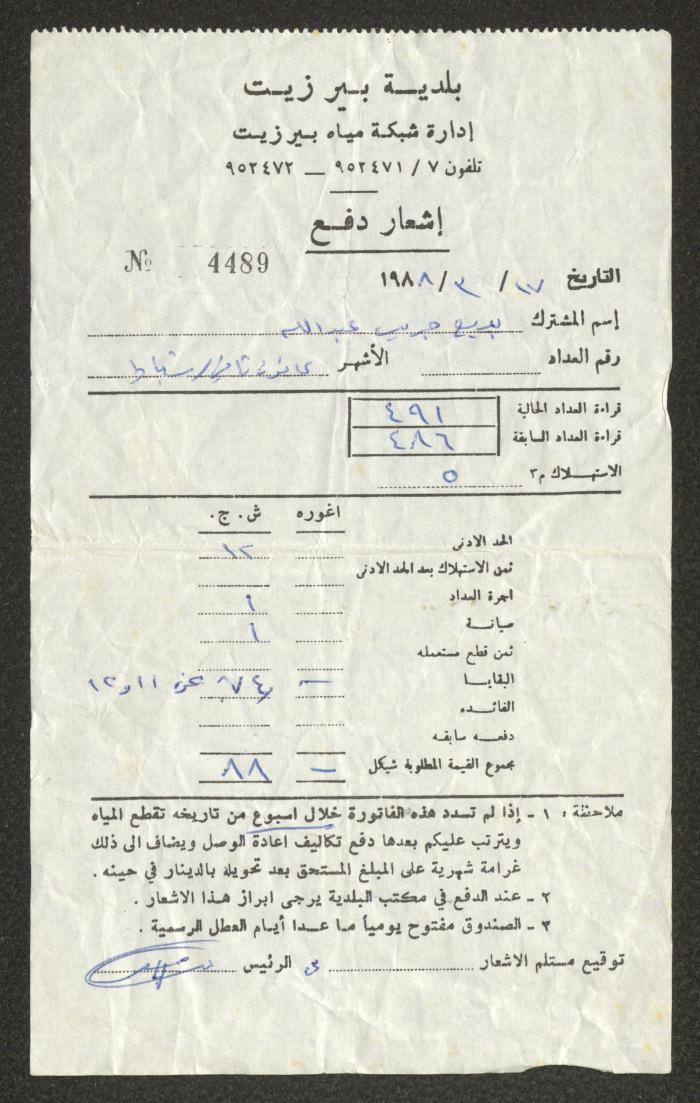 بلديـــة بـيـر زيـت
إدارة شبكة مياه بيرزيت
تلفون ٧ / ٩٥٢٤٧١ — ٩٥٢٤٧٢
إشعار دفـع
№ 4489
التاريخ ١٧ / ٣ / ١٩٨٨
إسم المشترك بديع جريس عبدالله
رقم العداد الأشهر كانون ثاني/شباط
قراءة العداد الحالية ٤٩١
قراءة العداد السابقة ٤٨٦
الاستهلاك م٣ ٥
اغوره ش. ج.
الحد الادنى ١٢
ثمن الاستهلاك بعد الحد الادنى
اجرة العداد ١
صيانـة ١
ثمن قطع مستعمله
البقايـا — ٧٤ عن ١١ و ١٢
الفائـده
دفعـه سابقـه
مجموع القيمة المطلوبة شيكل — ٨٨
ملاحظة : ١ - إذا لم تسدد هذه الفاتورة خلال اسبوع من تاريخه تقطع المياه
ويترتب عليكم بعدها دفع تكاليف اعادة الوصل ويضاف الى ذلك
غرامة شهرية على المبلغ المستحق بعد تحويله بالدينار في حينه .
٢ - عند الدفع في مكتب البلدية يرجى ابراز هـذا الاشعار .
٣ - الصندوق مفتوح يومياً مـا عـدا أيـام العطل الرسمية .
توقيع مستلم الاشعار الرئيس